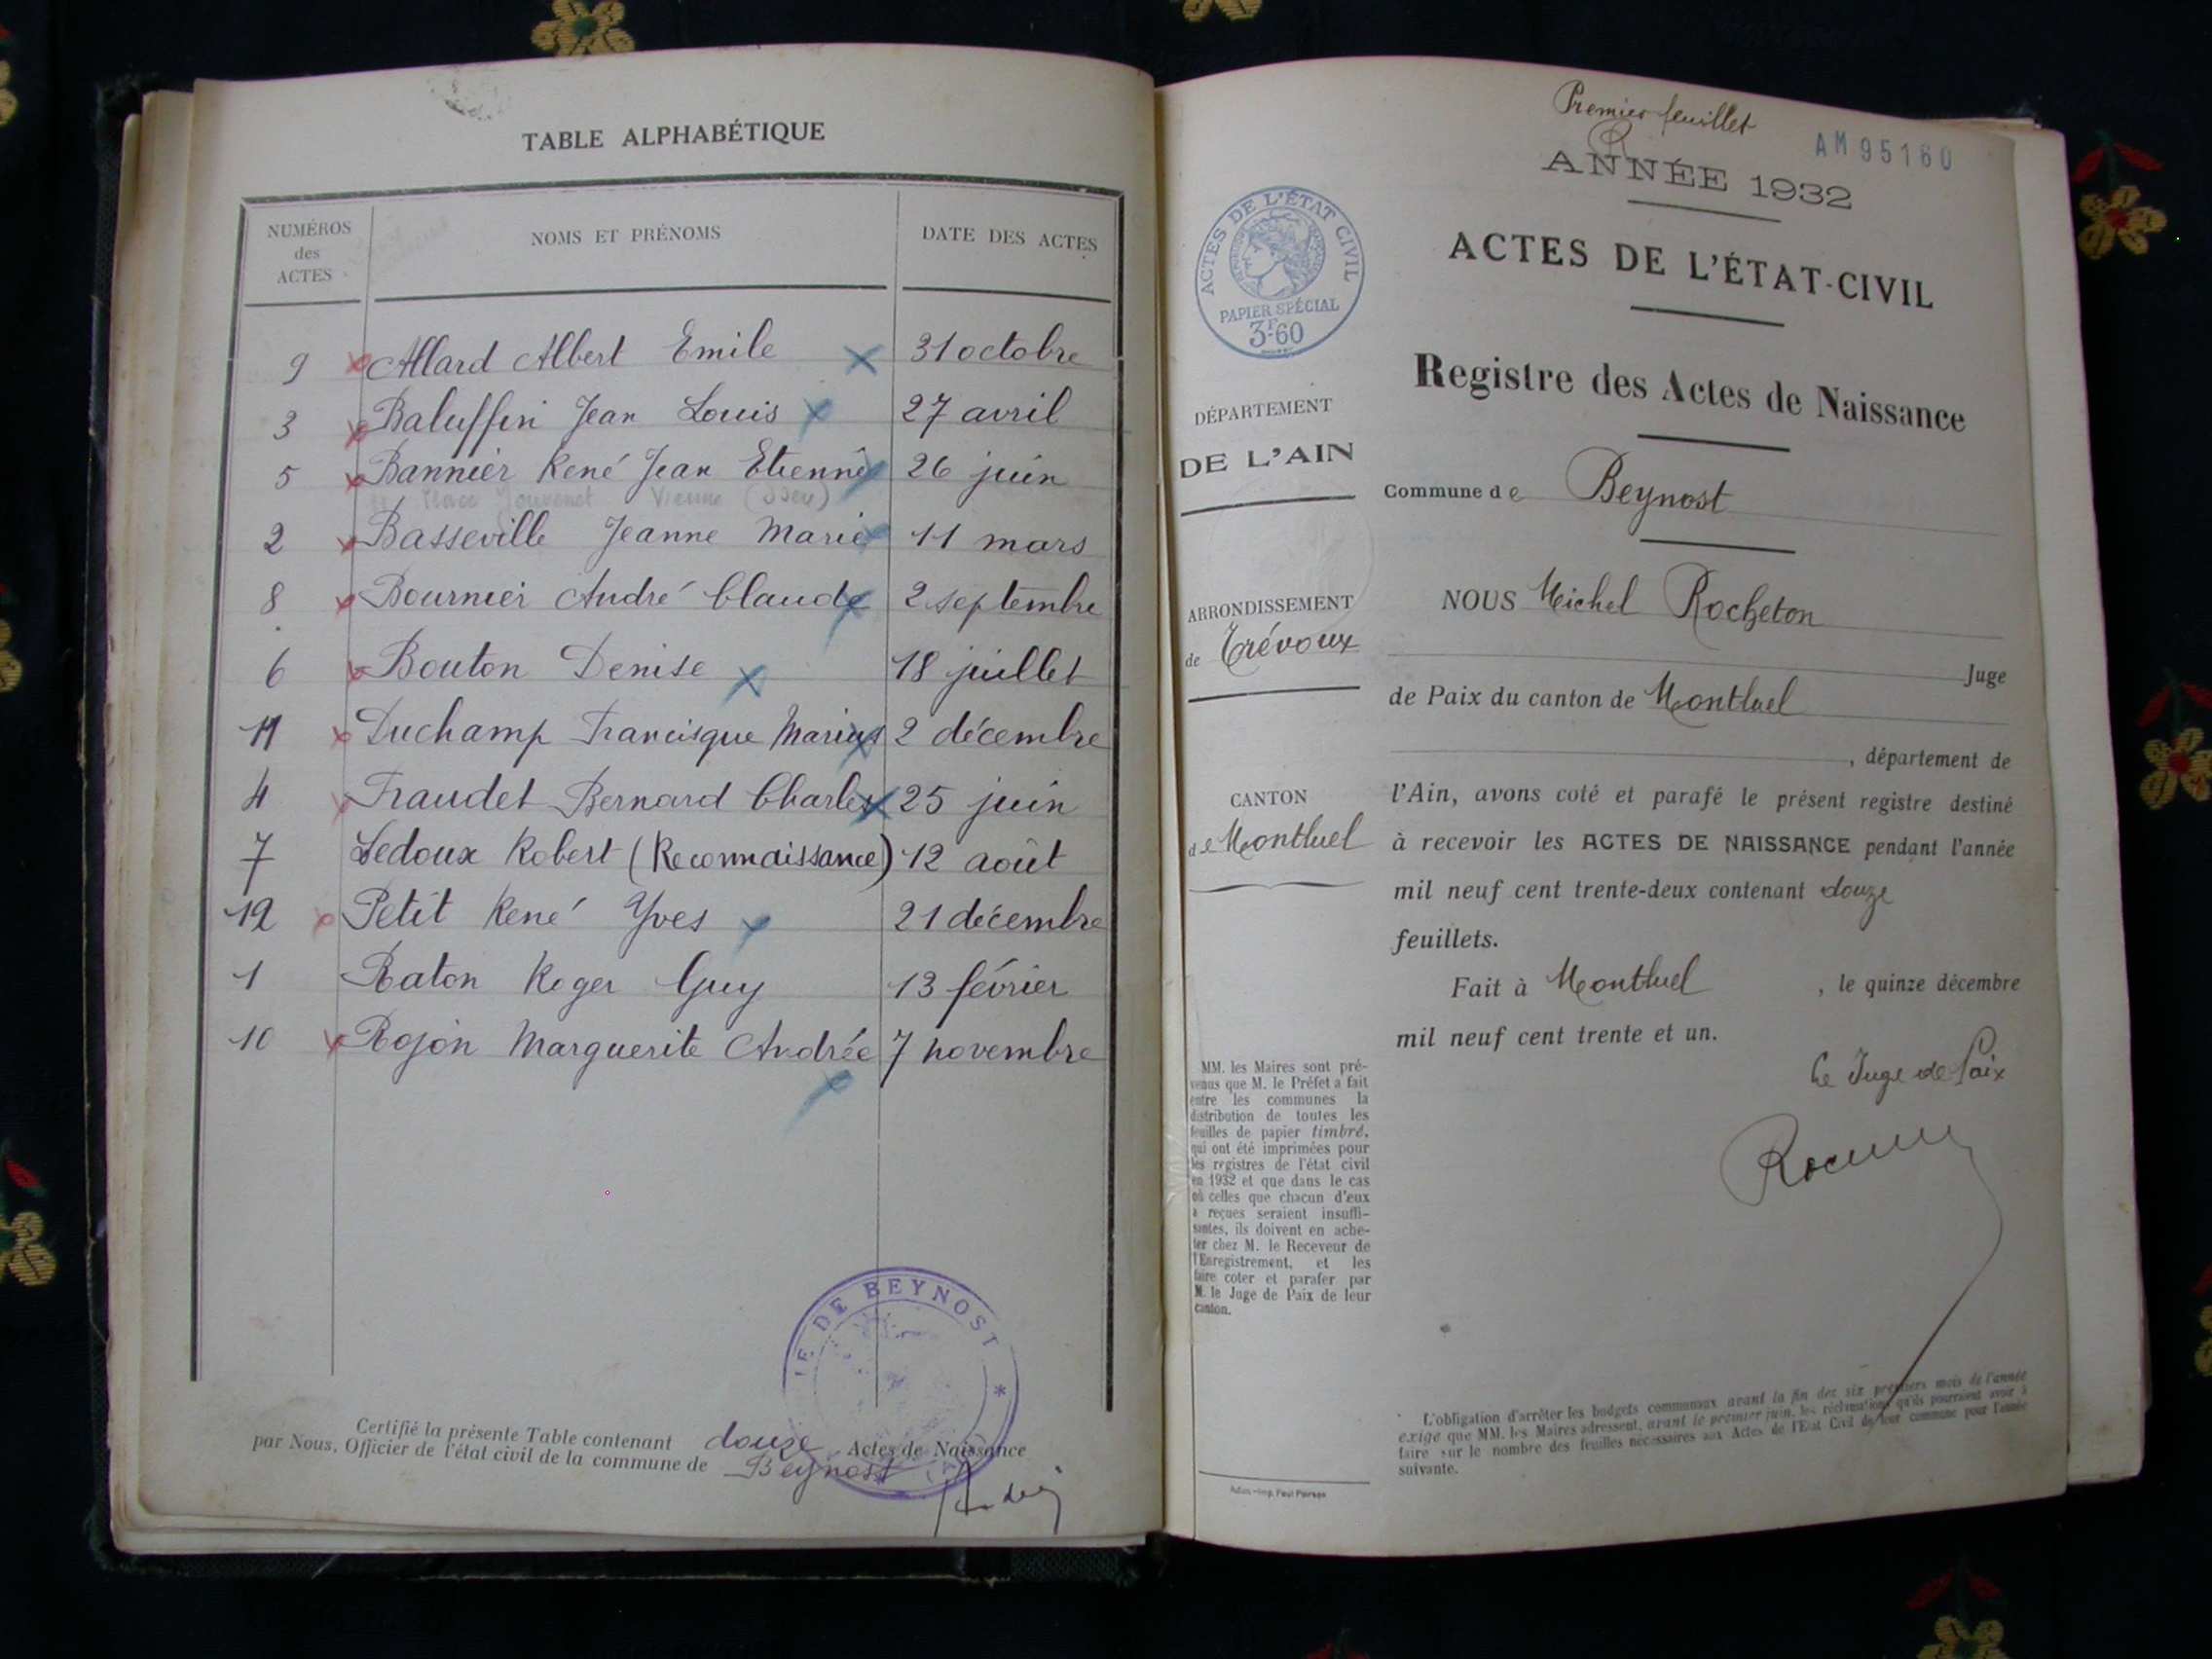 TABLE ALPHABÉTIQUE
NUMÉROS des ACTES NOMS ET PRÉNOMS DATE DES ACTES
9 Allard Albert Emile 31 octobre
3 Baluffin Jean Louis 27 avril
5 Bannier René Jean Etienne 26 juin
Place Jouvenet Vienne (Isère)
2 Basseville Jeanne Marie 11 mars
8 Bournier André Claude 2 septembre
6 Bouton Denise 18 juillet
11 Duchamp Francisque Marius 2 décembre
4 Fraudet Bernard Charles 25 juin
7 Ledoux Robert (Reconnaissance) 12 août
12 Petit René Yves 21 décembre
1 Raton Roger Guy 13 février
10 Rojon Marguerite Andrée 7 novembre
IE DE BEYNOST
Certifié la présente Table contenant douze Actes de Naissance
par Nous, Officier de l'état civil de la commune de Beynost
Premier feuillet
AM 95160
ANNÉE 1932
ACTES DE L'ÉTAT-CIVIL
Registre des Actes de Naissance
Commune de Beynost
NOUS Michel Rocheton
Juge
de Paix du canton de Montluel
, département de
l'Ain, avons coté et parafé le présent registre destiné
à recevoir les ACTES DE NAISSANCE pendant l'année
mil neuf cent trente-deux contenant douze
feuillets.
Fait à Montluel , le quinze décembre
mil neuf cent trente et un.
Le Juge de Paix
ACTES DE L'ÉTAT CIVIL
PAPIER SPÉCIAL
3F60
DÉPARTEMENT
DE L'AIN
ARRONDISSEMENT
de Trévoux
CANTON
de Montluel
MM. les Maires sont pré-
venus que M. le Préfet a fait
entre les communes la
distribution de toutes les
feuilles de papier timbré,
qui ont été imprimées pour
les registres de l'état civil
en 1932 et que dans le cas
où celles que chacun d'eux
a reçues seraient insuffi-
santes, ils doivent en ache-
ter chez M. le Receveur de
l'Enregistrement, et les
faire coter et parafer par
M. le Juge de Paix de leur
canton.
L'obligation d'arrêter les budgets communaux avant la fin des six premiers mois de l'année
exige que MM. les Maires adressent, avant le premier juin, les réclamations qu'ils pourraient avoir à
faire sur le nombre des feuilles nécessaires aux Actes de l'Etat Civil de leur commune pour l'année
suivante.